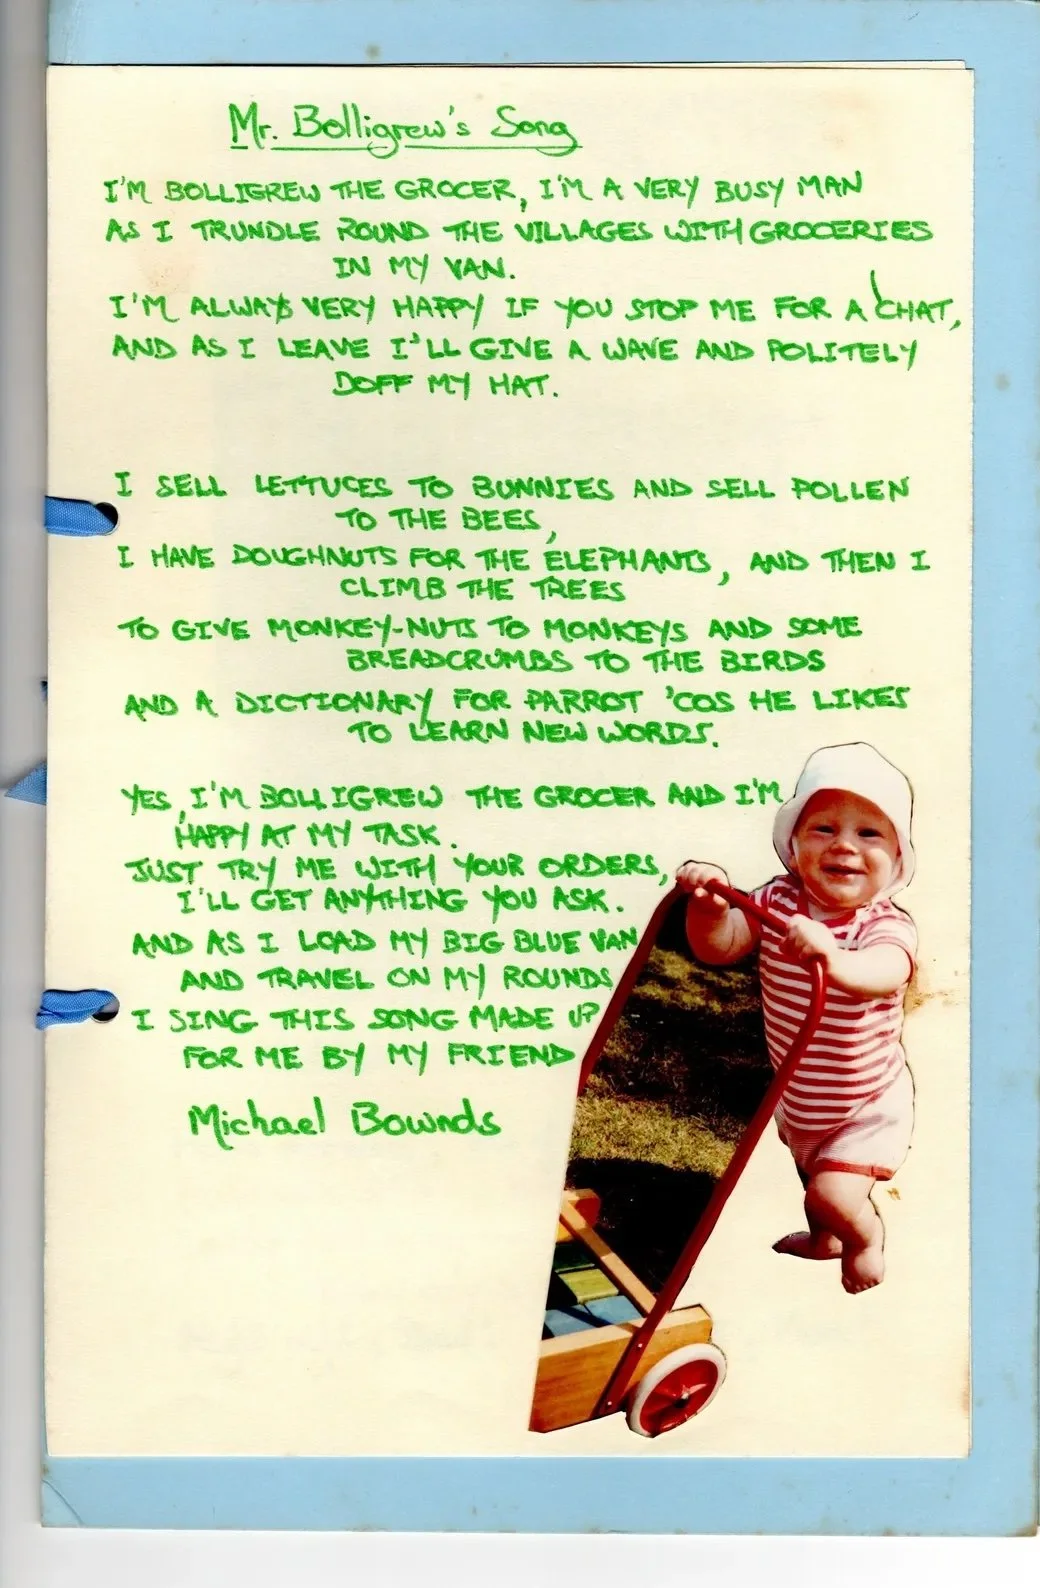 Mr. Bolligrew's Song
I'M BOLLIGREW THE GROCER, I'M A VERY BUSY MAN
AS I TRUNDLE ROUND THE VILLAGES WITH GROCERIES
IN MY VAN.
I'M ALWAYS VERY HAPPY IF YOU STOP ME FOR A CHAT,
AND AS I LEAVE I'LL GIVE A WAVE AND POLITELY
DOFF MY HAT.
I SELL LETTUCES TO BUNNIES AND SELL POLLEN
TO THE BEES,
I HAVE DOUGHNUTS FOR THE ELEPHANTS, AND THEN I
CLIMB THE TREES
TO GIVE MONKEY-NUTS TO MONKEYS AND SOME
BREADCRUMBS TO THE BIRDS
AND A DICTIONARY FOR PARROT 'COS HE LIKES
TO LEARN NEW WORDS.
YES, I'M BOLLIGREW THE GROCER AND I'M
HAPPY AT MY TASK.
JUST TRY ME WITH YOUR ORDERS,
I'LL GET ANYTHING YOU ASK.
AND AS I LOAD MY BIG BLUE VAN
AND TRAVEL ON MY ROUNDS
I SING THIS SONG MADE UP
FOR ME BY MY FRIEND
Michael Bownds